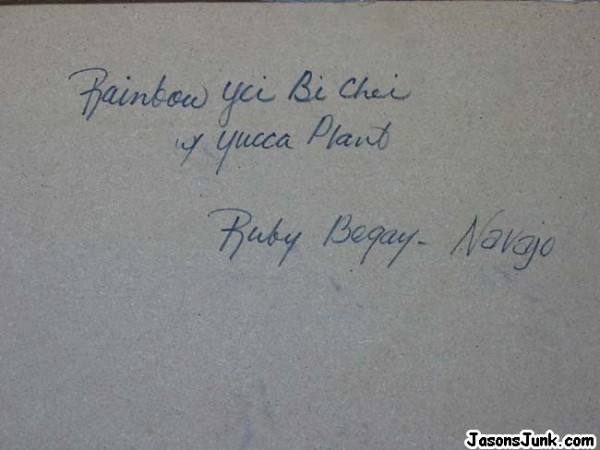 Rainbow Yei Bi Chei
w/ Yucca Plant
Ruby Begay - Navajo
JasonsJunk.com